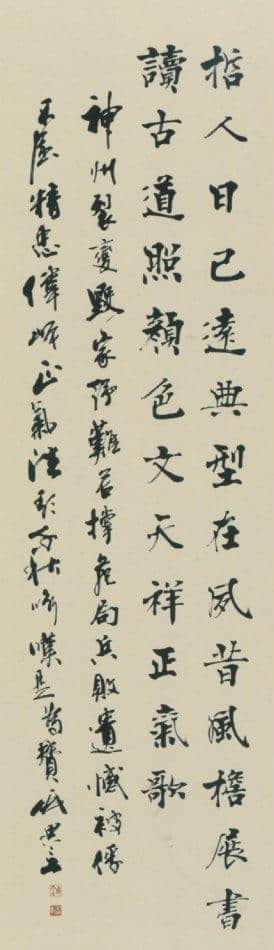 哲人日已遠典型在夙昔風檐展書
讀古道照顏色文天祥正氣歌
神州裂變毀家紓難苦撐危局兵敗遺憾被俘
不屈精忠偉峙正氣浩然千秋吟嘆是為贊